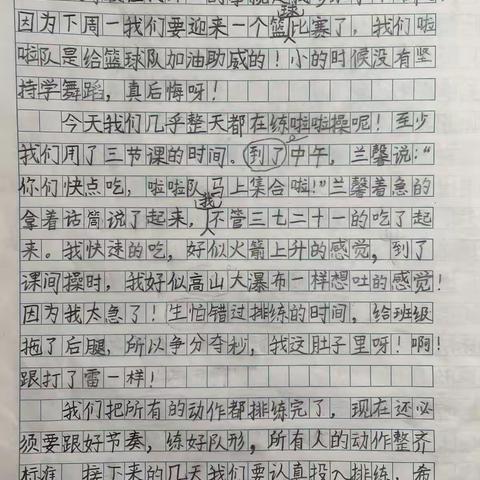 因为下周一我们要迎来一个篮球比赛了，我们啦
啦队是给篮球队加油助威的！小的时候没有坚
持学舞蹈，真后悔呀！
今天我们几乎整天都在练啦啦操呢！至少
我们用了三节课的时间。到了中午，兰馨说：“
你们快点吃，啦啦队马上集合啦！”兰馨着急的
拿着话筒说了起来，我不管三七二十一的吃了起
来。我快速的吃，好似火箭上升的感觉，到了
课间操时，我好似高山大瀑布一样想吐的感觉！
因为我太急了！生怕错过排练的时间，给班级
拖了后腿，所以争分夺秒，我这肚子里呀！啊！
跟打了雷一样！
我们把所有的动作都排练完了，现在还必
须要跟好节奏，练好队形，所有人的动作整齐
标准，接下来的几天我们要认真投入排练，希